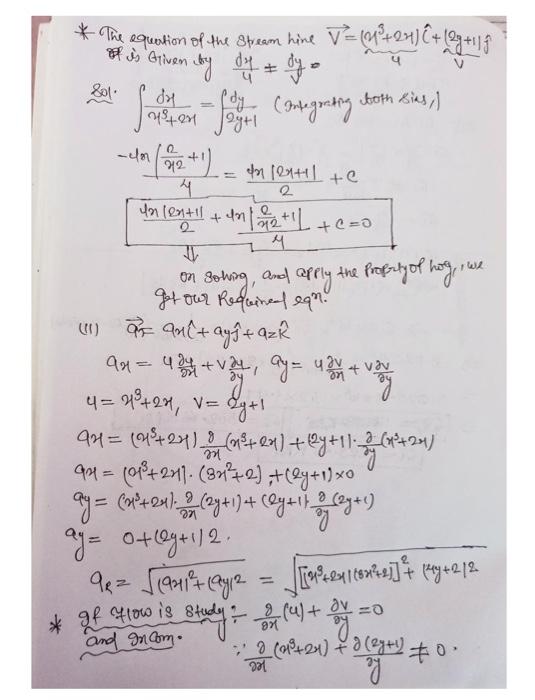 * The equation of the stream line V⃗ = (x³+2x)î + (2y+1)ĵ
u v
is Given by dx/u = dy/v
Sol. ∫ dx/x³+2x = ∫ dy/2y+1 (Integrating both sies,)
-ln(2/x2 +1)/4 = ln|2x+1|/2 + c
ln|2x+1|/2 + ln|2/x2 +1|/4 + c = 0
⇓
on solving, and apply the Property of log, we
get our Required eqn.
(11) a⃗ = axî + ayĵ + azk̂
ax = u ∂u/∂x + v ∂u/∂y, ay = u ∂v/∂x + v ∂v/∂y
u = x³+2x, v = 2y+1
ax = (x³+2x) ∂/∂x (x³+2x) + (2y+1). ∂/∂y (x³+2x)
ax = (x³+2x). (3x²+2) + (2y+1)×0
ay = (x³+2x). ∂/∂x (2y+1) + (2y+1). ∂/∂y (2y+1)
ay = 0+(2y+1)2.
aR = √(ax)²+(ay)2 = √[(x³+2x)(3x²+2)]² + (4y+2)2
* If Flow is study :- ∂/∂x (u) + ∂v/∂y = 0
and Incom. ∵ ∂/∂x (x³+2x) + ∂(2y+1)/∂y ≠ 0.